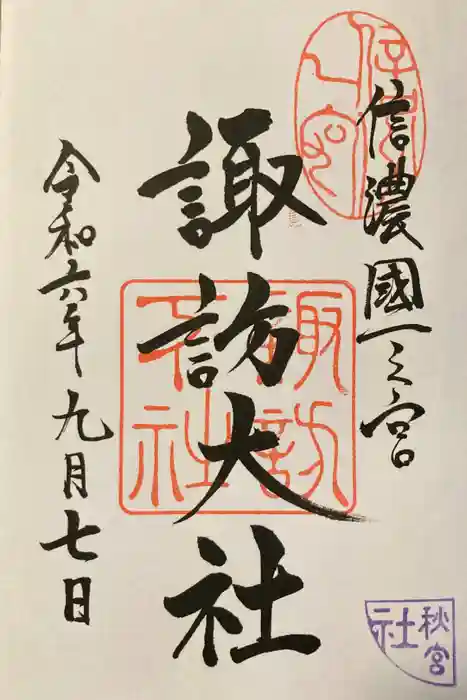 信濃國一之宮
諏訪大社
令和六年九月七日
諏訪大社
秋宮
社